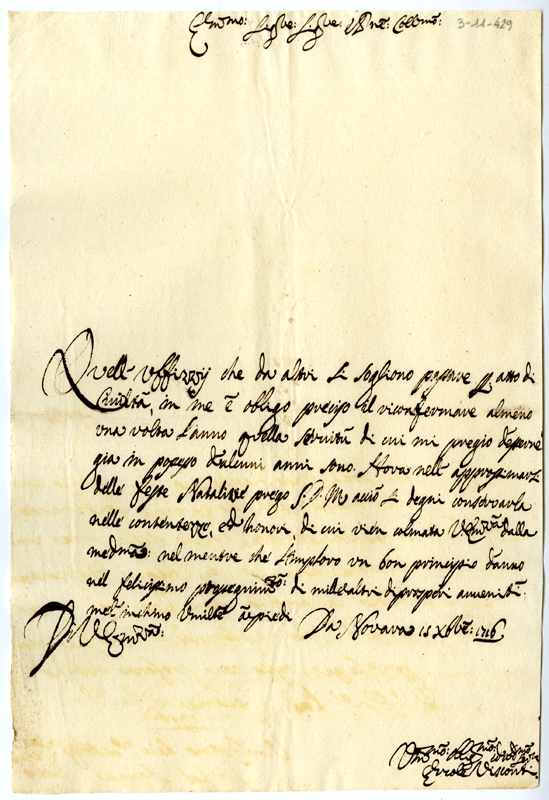 Em̃mo: Sig.re Sig.re P̃ne: Coll̃mo:
3-11-429
Quell' Uffizzij che da altri si sogliono passare p atto di
Civiltà, in me è obligo preciso il riconfermare almeno
una volta l'anno quella servitù di cui mi pregio d'essere
già in possesso d'alcuni anni sono. Hora nell' approssimarsi
delle feste Natalizie prego S. D. M acciò si degni conservarla
nelle contentezze, ed honori, di cui vien colmata V. Em̃za dalla
medm̃a: nel mentre che l'imploro un bon principio d'anno
nel felicissimo di mille altri di prosperi avvenim̃ti
me l'inchino umilte a piedi Da Novara 15 Xbre: 1716.
Di V. Em̃za:
Ercole Visconti